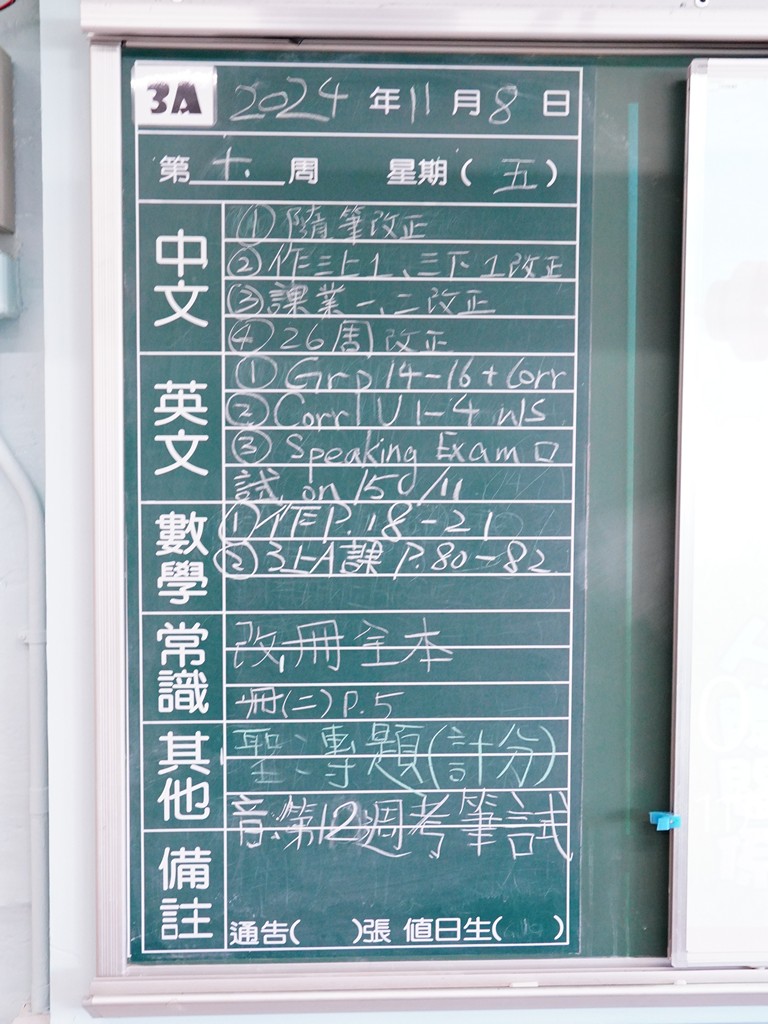 3A 2024 年 11 月 8 日
第 十 周 星期( 五 )
中文
① 隨筆改正
② 作三上1、三下1改正
③ 課業一、二改正
④ 26周改正
英文
① Grp 14-16 + Corr
② Corr U 1-4 WS
③ Speaking Exam 口
試 on 15/11
數學
① 作P.18-21
② 3上A課 P.80-82
常識
改,冊全本
冊(二) P.5
其他
聖:專題(計分)
音:第12週考筆試
備註
通告( )張 值日生( )